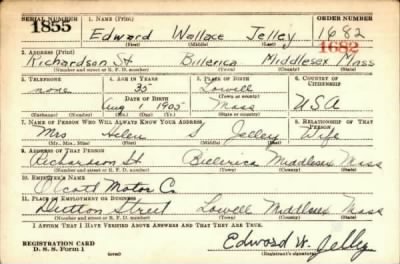 SERIAL NUMBER 1. NAME (Print) ORDER NUMBER
1855 Edward Wallace Jelley 1682
(First) (Middle) (Last) 1682
2. ADDRESS (Print)
Richardson St Billerica Middlesex Mass
(Number and street or R. F. D. number) (Town) (County) (State)
3. TELEPHONE 4. AGE IN YEARS 5. PLACE OF BIRTH 6. COUNTRY OF
none 35 Lowell CITIZENSHIP
DATE OF BIRTH (Town or county)
Aug 1905 Mass USA
(Exchange) (Number) (Mo.) (Day) (Yr.) (State or country)
7. NAME OF PERSON WHO WILL ALWAYS KNOW YOUR ADDRESS 8. RELATIONSHIP OF THAT
PERSON
Mrs Helen S Jelley Wife
(Mr., Mrs., Miss) (First) (Middle) (Last)
9. ADDRESS OF THAT PERSON
Richardson St Billerica Middlesex Mass
(Number and street or R. F. D. number) (Town) (County) (State)
10. EMPLOYER'S NAME
Olcott Motor Co
11. PLACE OF EMPLOYMENT OR BUSINESS
Dutton Street Lowell Middlesex Mass
(Number and street or R. F. D. number) (Town) (County) (State)
I AFFIRM THAT I HAVE VERIFIED ABOVE ANSWERS AND THAT THEY ARE TRUE.
REGISTRATION CARD
D. S. S. Form 1 (over) Edward W. Jelley
(Registrant's signature)